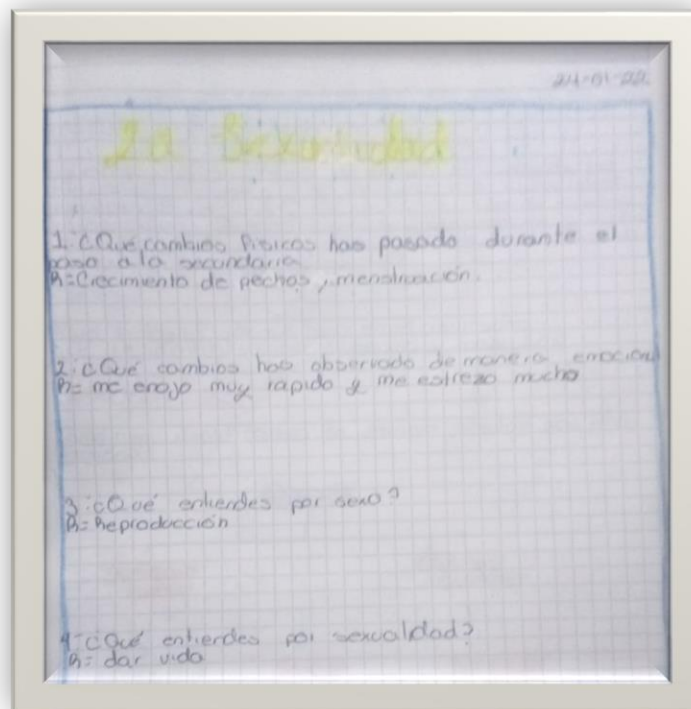 24-01-22
La Sexualidad
1.-¿Que cambios fisicos has pasado durante el
paso a la secundaria
R=Crecimiento de pechos, menstruación.
2.-¿Qué cambios has observado de manera emocional
R= me enojo muy rapido y me estrezo mucho
3.-¿Qué entiendes por sexo?
R= Reproducción
4.-¿Qué entiendes por sexualidad?
R= dar vida